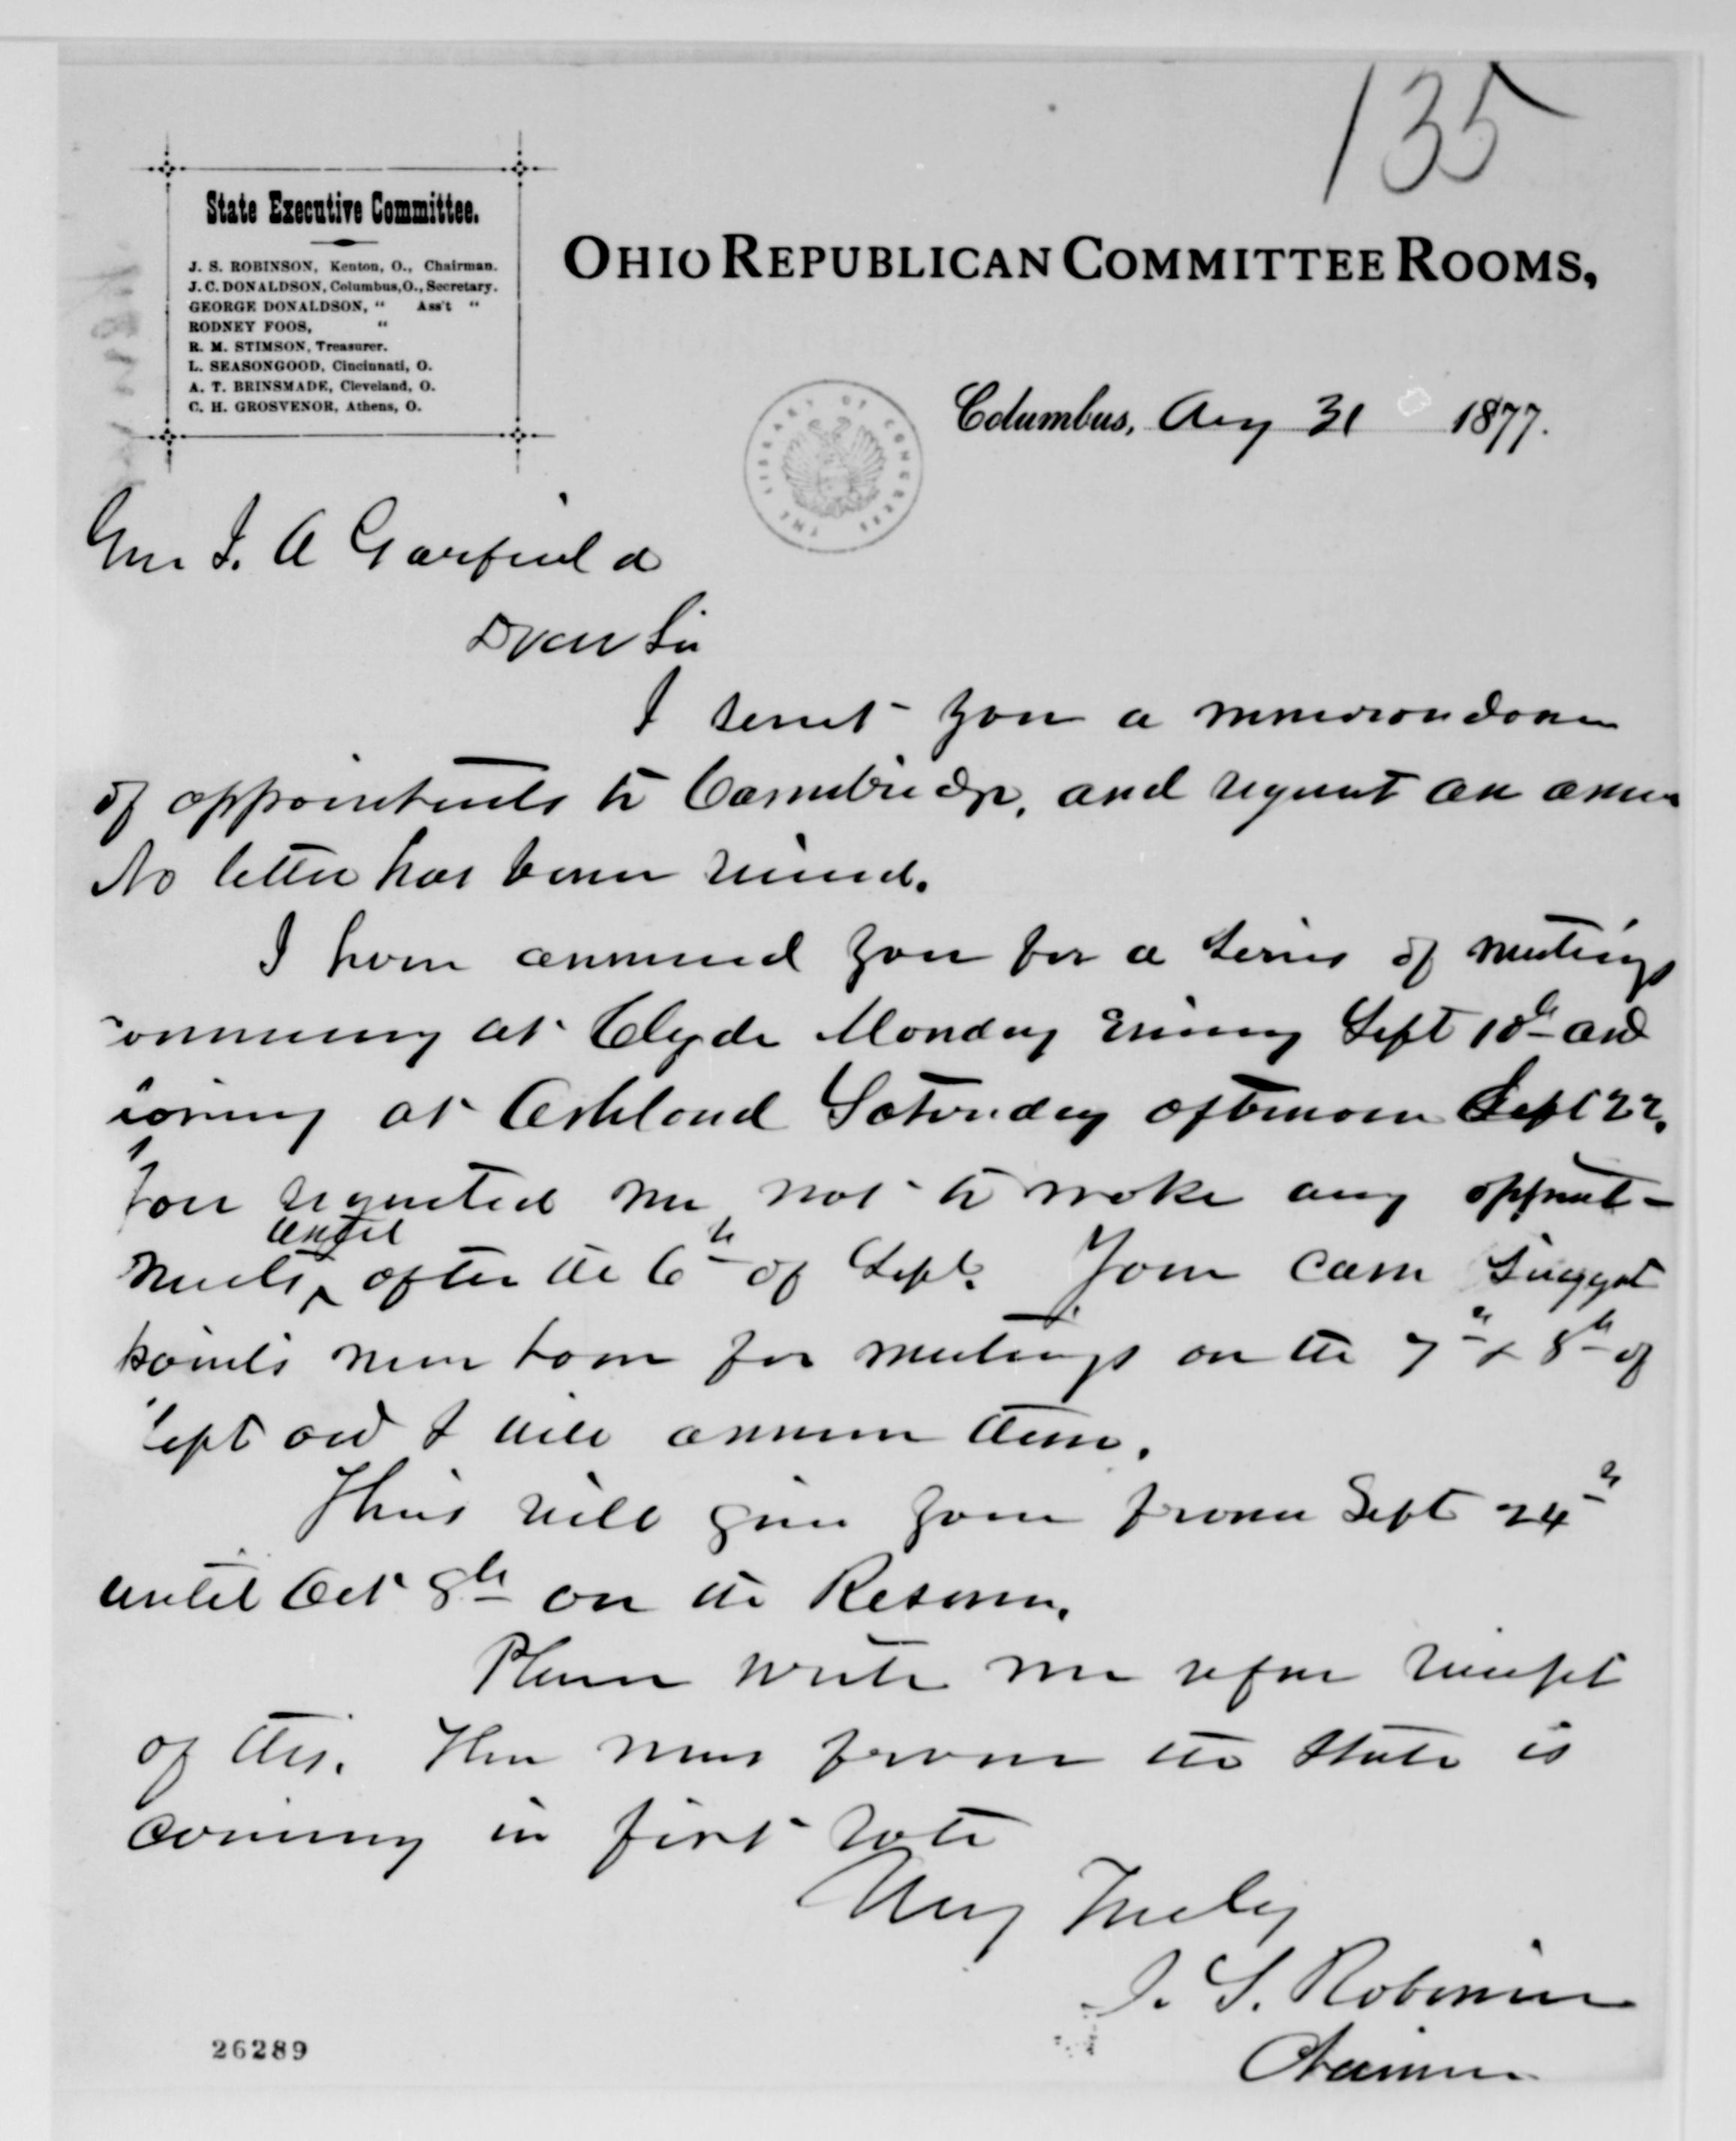 135
State Executive Committee.
J. S. ROBINSON, Kenton, O., Chairman.
J. C. DONALDSON, Columbus, O., Secretary.
GEORGE DONALDSON, " Ass't "
RODNEY FOOS, "
R. M. STIMSON, Treasurer.
L. SEASONGOOD, Cincinnati, O.
A. T. BRINSMADE, Cleveland, O.
C. H. GROSVENOR, Athens, O.
OHIO REPUBLICAN COMMITTEE ROOMS,
Columbus, Aug 31 1877.
THE LIBRARY OF CONGRESS
Gen J. A Garfield
Dear Sir
I sent you a memorandum
of appointments to Cambridge, and request an answer
No letter has been received.
I have announced you for a series of meetings
commencing at Clyde Monday evening Sept 10th and
closing at Ashland Saturday afternoon Sept 22.
You requested me not to make any appoint-
ments, until after the 6th of Sept. You can suggest
points near home for meetings on the 7th & 8th of
Sept and I will announce them.
This will give you from Sept 24th
until Oct 8th on the Reserve.
Please write me upon receipt
of this. The news from the State is
coming in first rate
Very Truly
J. S. Robinson
Chairman
26289